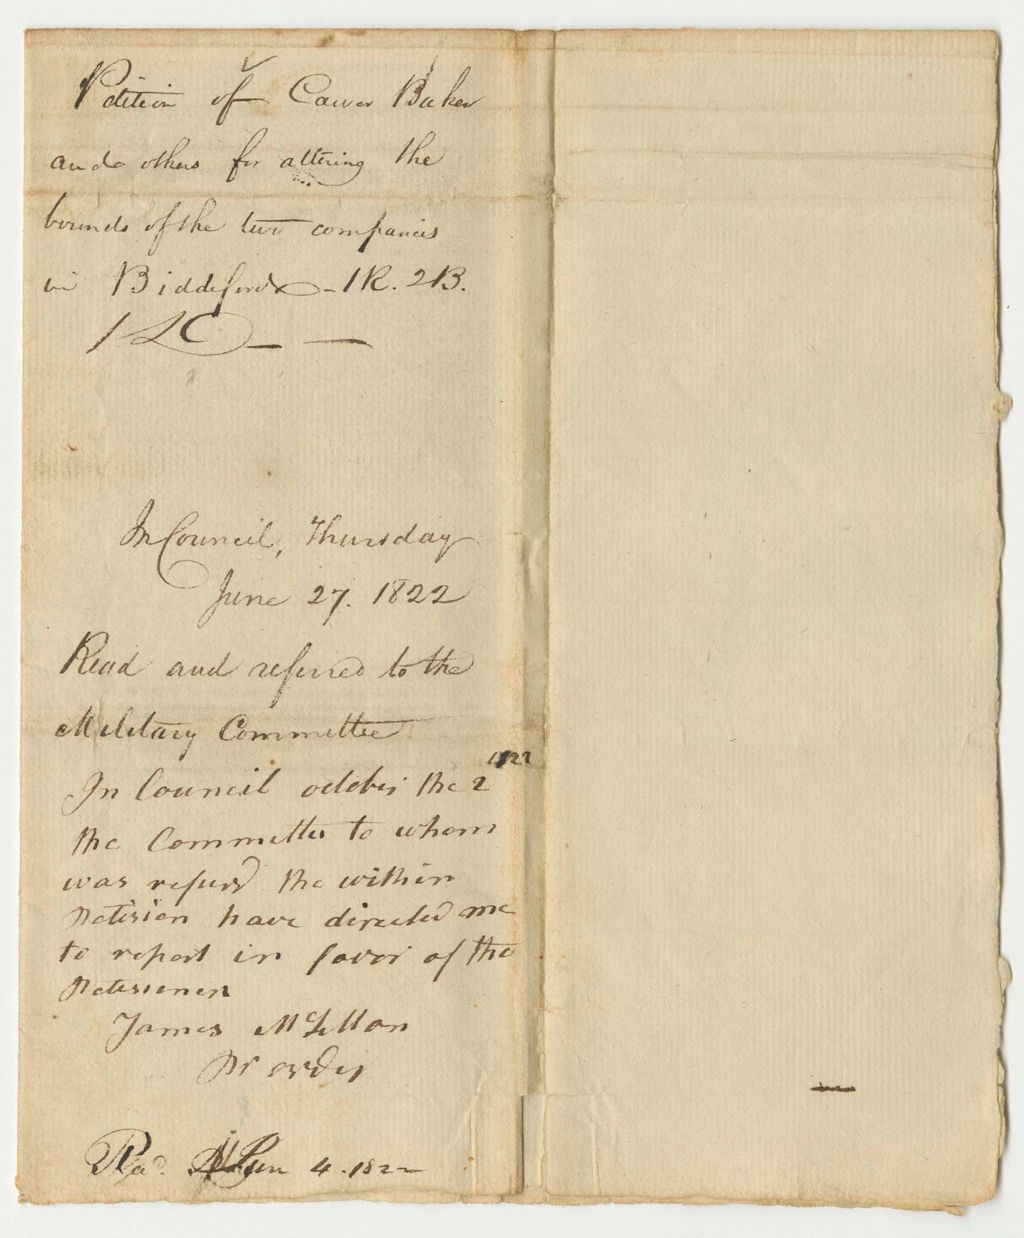 Petition of Baker
and others for altering the
bounds of the two companies
in Biddeford - 1R. 2B.
1 D
In Council, Thursday
June 27. 1822
Read and referred to the
Military Committee
In Council october the 2 1822
the Committee to whom
was referd the within
petision have directed me
to report in favor of the
petisioners
James McLellan
pr order
Rcd. Jun 4. 1822